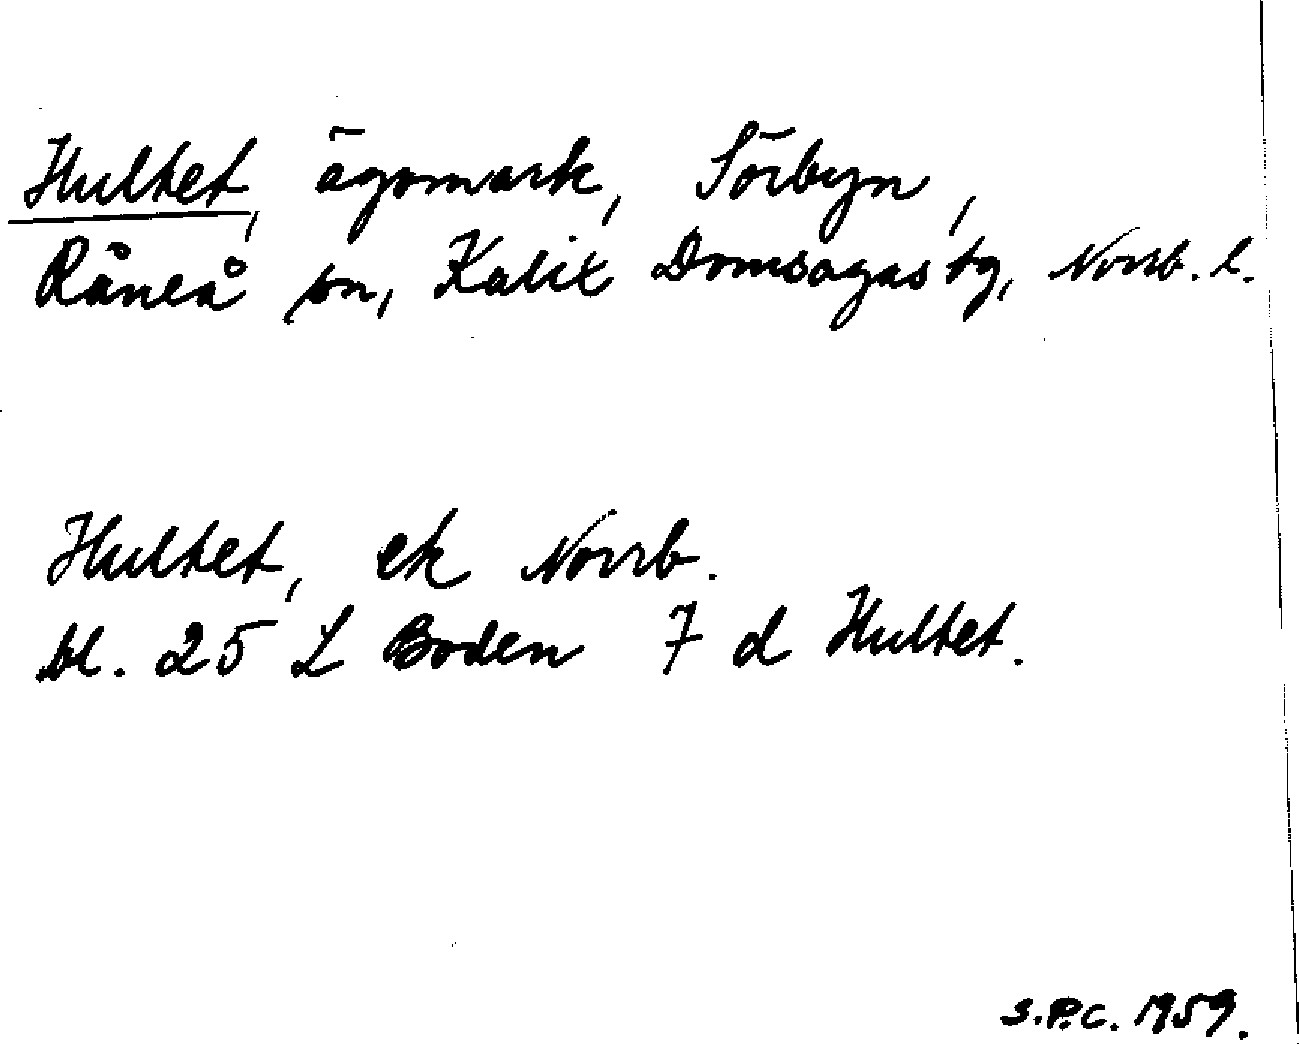 Hultet, ägomark, Sörbyn,
Råneå sn, Kalix Domsagas tg, Norrb. l.
Hultet, ek Norrb.
bl. 25 L Boden 7 d Hultet.
S.P.C. 1959.